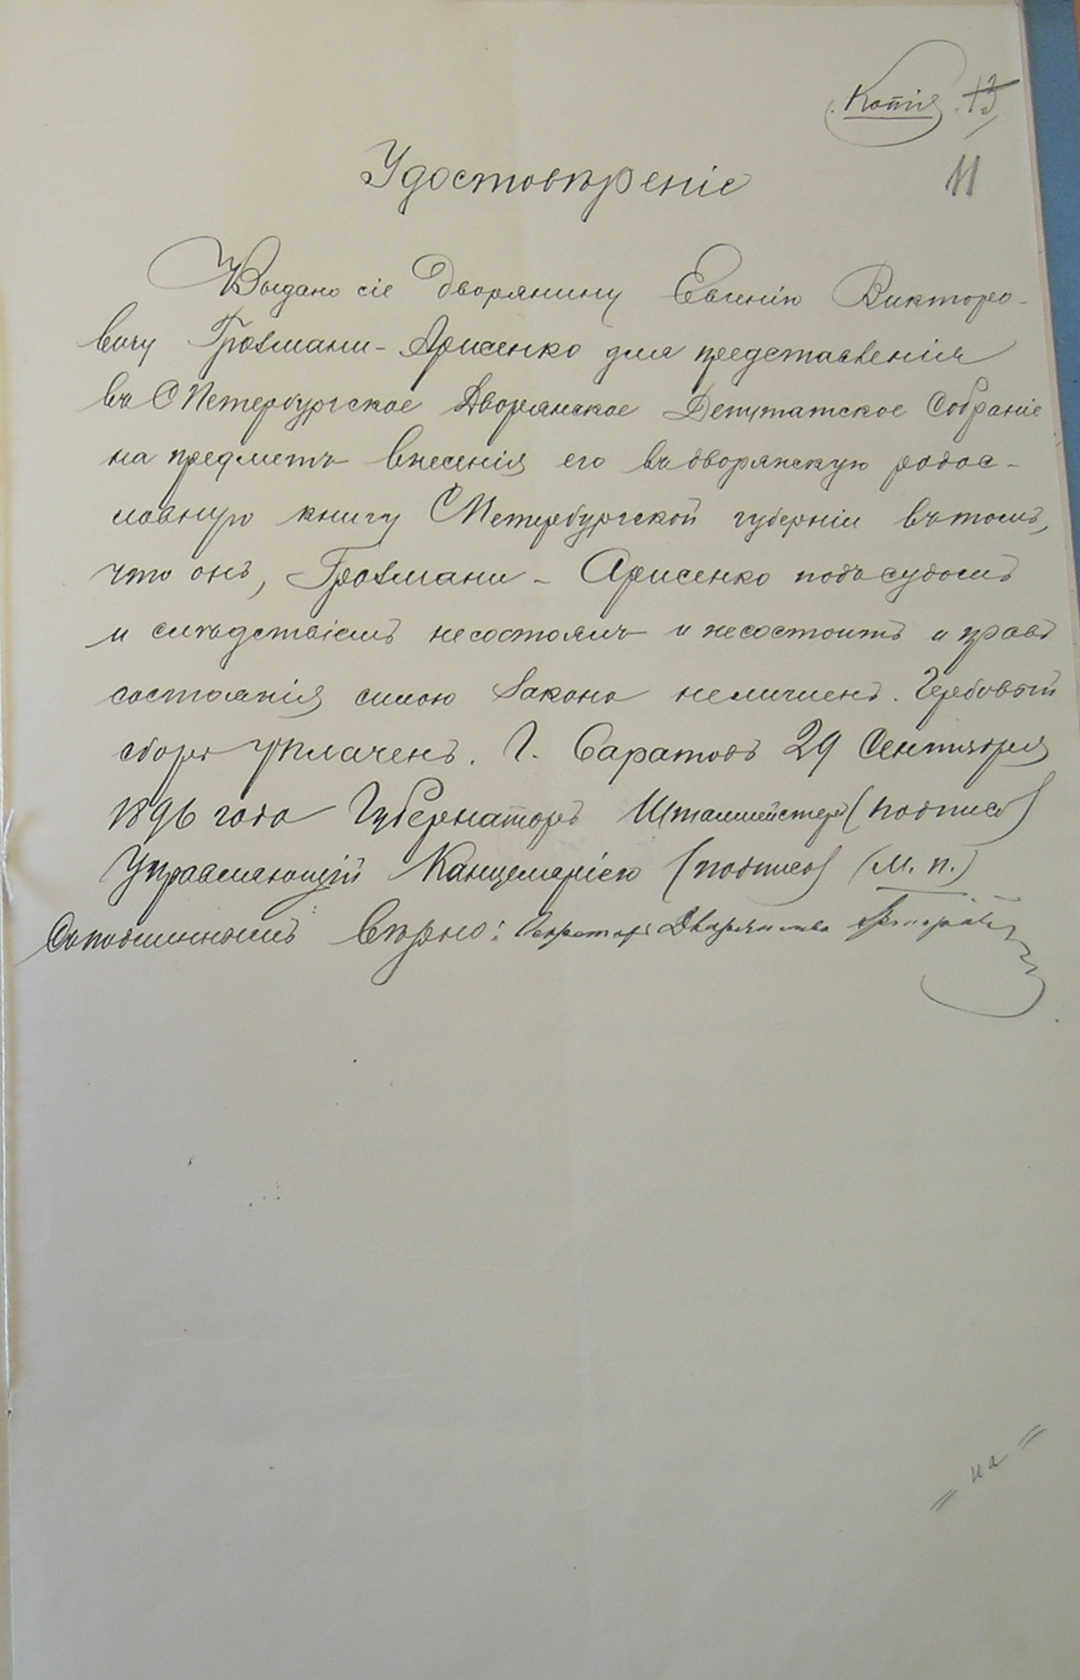 Копія 13
11
Удостовѣреніе
Выдано сіе Дворянину Евгенію Викторо-
вичу Гротманъ-Арисенко для представленія
въ СПетербургское Дворянское Депутатское Собраніе
на предметъ внесенія его въ дворянскую родос-
ловную книгу СПетербургской губерніи въ томъ,
что онъ, - Арисенко подъ судомъ
и слѣдствіемъ несостоялъ и несостоитъ и правъ
состоянія силою закона нелишенъ. Гербовый
сборъ уплаченъ. Г. Саратовъ 29 Сентября
1896 года Губернаторъ Шталмейстеръ (подпись)
Управляющій Канцеляріею (подпись) (М. П.)
Съ подлиннымъ вѣрно: Секретарь Дворянства
"на"